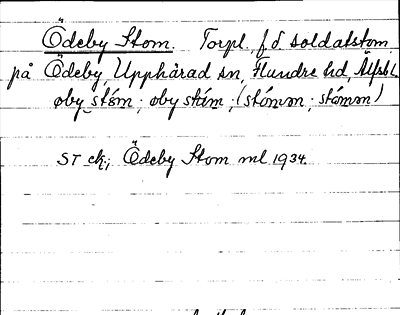 Ödeby Stom. Torpl. f d soldatstom
på Ödeby, Upphärad sn, Flundre hd, Älfsb l.
øby stóm; øby stúm; (stómm; stómm)
ST ck; Ödeby Stom ml 1934.